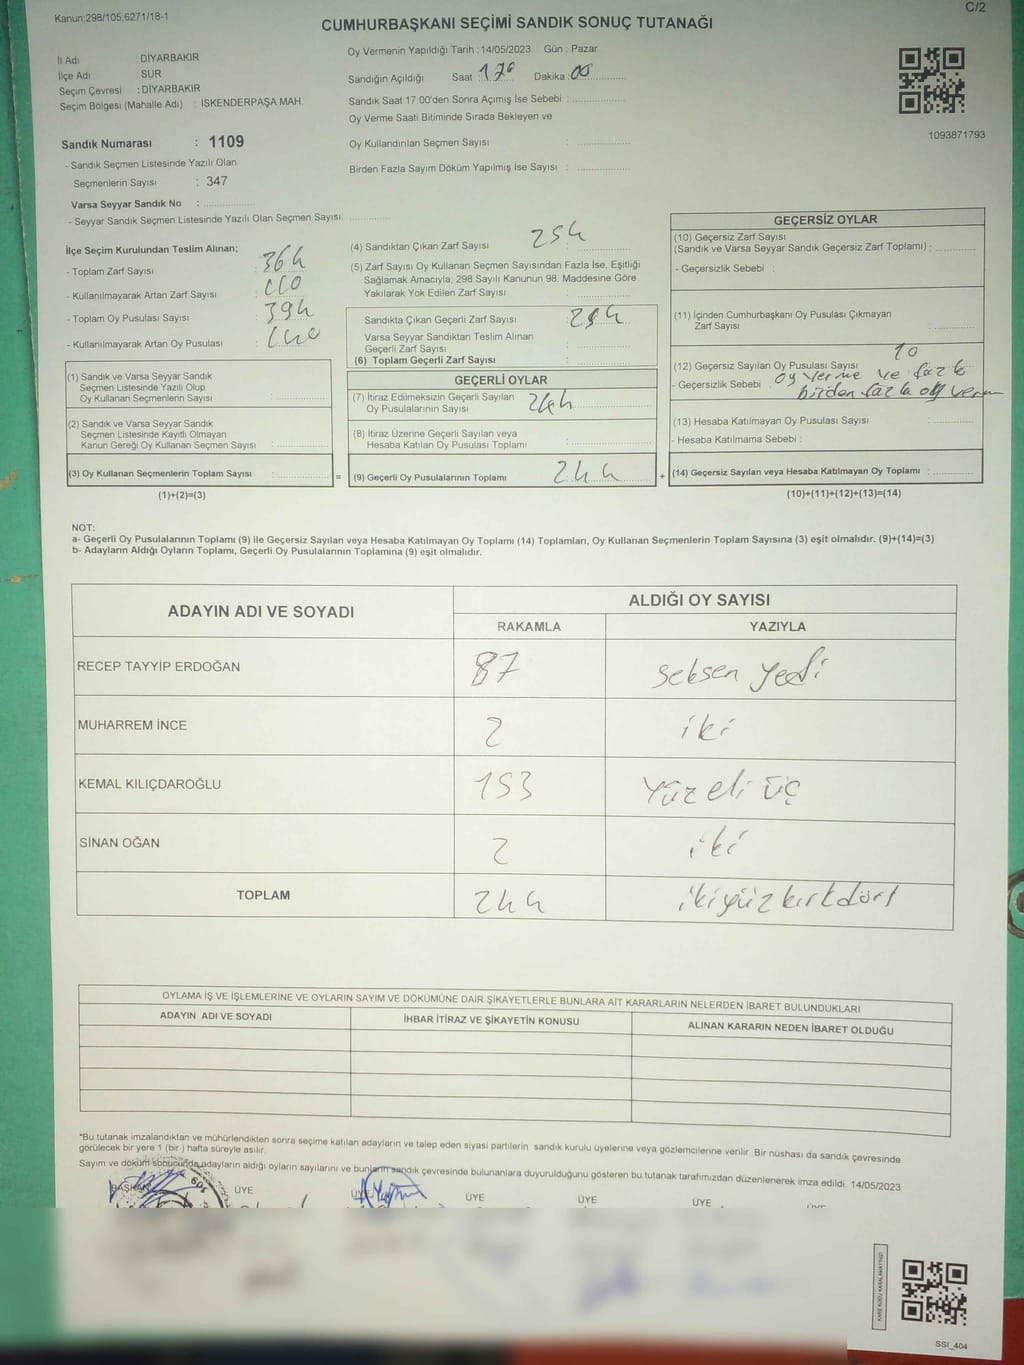 Kanun:298/105,6271/18-1
C/2
CUMHURBAŞKANI SEÇİMİ SANDIK SONUÇ TUTANAĞI
İl Adı : DİYARBAKIR
İlçe Adı : SUR
Seçim Çevresi : DİYARBAKIR
Seçim Bölgesi (Mahalle Adı) : İSKENDERPAŞA MAH.
Sandık Numarası : 1109
- Sandık Seçmen Listesinde Yazılı Olan
Seçmenlerin Sayısı : 347
Varsa Seyyar Sandık No :
- Seyyar Sandık Seçmen Listesinde Yazılı Olan Seçmen Sayısı:
Oy Vermenin Yapıldığı Tarih : 14/05/2023 Gün : Pazar
Sandığın Açıldığı Saat : Dakika 00
Sandık Saat 17:00'den Sonra Açımış İse Sebebi :
Oy Verme Saati Bitiminde Sırada Bekleyen ve
Oy Kullandırılan Seçmen Sayısı :
Birden Fazla Sayım Döküm Yapılmış İse Sayısı :
1093871793
İlçe Seçim Kurulundan Teslim Alınan;
- Toplam Zarf Sayısı : 364
- Kullanılmayarak Artan Zarf Sayısı : 110
- Toplam Oy Pusulası Sayısı : 394
- Kullanılmayarak Artan Oy Pusulası : 140
(1) Sandık ve Varsa Seyyar Sandık
Seçmen Listesinde Yazılı Olup
Oy Kullanan Seçmenlerin Sayısı :
(2) Sandık ve Varsa Seyyar Sandık
Seçmen Listesinde Kayıtlı Olmayan
Kanun Gereği Oy Kullanan Seçmen Sayısı :
(3) Oy Kullanan Seçmenlerin Toplam Sayısı : =
(1)+(2)=(3)
(4) Sandıktan Çıkan Zarf Sayısı : 254
(5) Zarf Sayısı Oy Kullanan Seçmen Sayısından Fazla İse, Eşitliği
Sağlamak Amacıyla, 298 Sayılı Kanunun 98. Maddesine Göre
Yakılarak Yok Edilen Zarf Sayısı :
Sandıkta Çıkan Geçerli Zarf Sayısı : 254
Varsa Seyyar Sandıktan Teslim Alınan
Geçerli Zarf Sayısı :
(6) Toplam Geçerli Zarf Sayısı :
GEÇERLİ OYLAR
(7) İtiraz Edilmeksizin Geçerli Sayılan
Oy Pusulalarının Sayısı : 244
(8) İtiraz Üzerine Geçerli Sayılan veya
Hesaba Katılan Oy Pusulası Toplamı :
(9) Geçerli Oy Pusulalarının Toplamı : 244 +
GEÇERSİZ OYLAR
(10) Geçersiz Zarf Sayısı
(Sandık ve Varsa Seyyar Sandık Geçersiz Zarf Toplamı) :
- Geçersizlik Sebebi :
(11) İçinden Cumhurbaşkanı Oy Pusulası Çıkmayan
Zarf Sayısı :
(12) Geçersiz Sayılan Oy Pusulası Sayısı : 10
- Geçersizlik Sebebi : oy verme ve fazla
birden fazla oy veren
(13) Hesaba Katılmayan Oy Pusulası Sayısı :
- Hesaba Katılmama Sebebi :
(14) Geçersiz Sayılan veya Hesaba Katılmayan Oy Toplamı :
(10)+(11)+(12)+(13)=(14)
NOT:
a- Geçerli Oy Pusulalarının Toplamı (9) ile Geçersiz Sayılan veya Hesaba Katılmayan Oy Toplamı (14) Toplamları, Oy Kullanan Seçmenlerin Toplam Sayısına (3) eşit olmalıdır. (9)+(14)=(3)
b- Adayların Aldığı Oyların Toplamı, Geçerli Oy Pusulalarının Toplamına (9) eşit olmalıdır.
ADAYIN ADI VE SOYADI
ALDIĞI OY SAYISI
RAKAMLA YAZIYLA
RECEP TAYYİP ERDOĞAN 87 seksen yedi
MUHARREM İNCE 2 iki
KEMAL KILIÇDAROĞLU 153 Yüz eli üç
SİNAN OĞAN 2 iki
TOPLAM 244 ikiyüz kırkdört
OYLAMA İŞ VE İŞLEMLERİNE VE OYLARIN SAYIM VE DÖKÜMÜNE DAİR ŞİKAYETLERLE BUNLARA AİT KARARLARIN NELERDEN İBARET BULUNDUKLARI
ADAYIN ADI VE SOYADI İHBAR İTİRAZ VE ŞİKAYETİN KONUSU ALINAN KARARIN NEDEN İBARET OLDUĞU
"Bu tutanak imzalandıktan ve mühürlendikten sonra seçime katılan adayların ve talep eden siyasi partilerin sandık kurulu üyelerine veya gözlemcilerine verilir. Bir nüshası da sandık çevresinde
görülecek bir yere 1 (bir) hafta süreyle asılır.
Sayım ve döküm sonucunda adayların aldığı oyların sayılarını ve bunların sandık çevresinde bulunanlara duyurulduğunu gösteren bu tutanak tarafımızdan düzenlenerek imza edildi. 14/05/2023
BAŞKAN ÜYE ÜYE ÜYE ÜYE ÜYE
KARE KODU KARALAMAYINIZ!
SSI_404